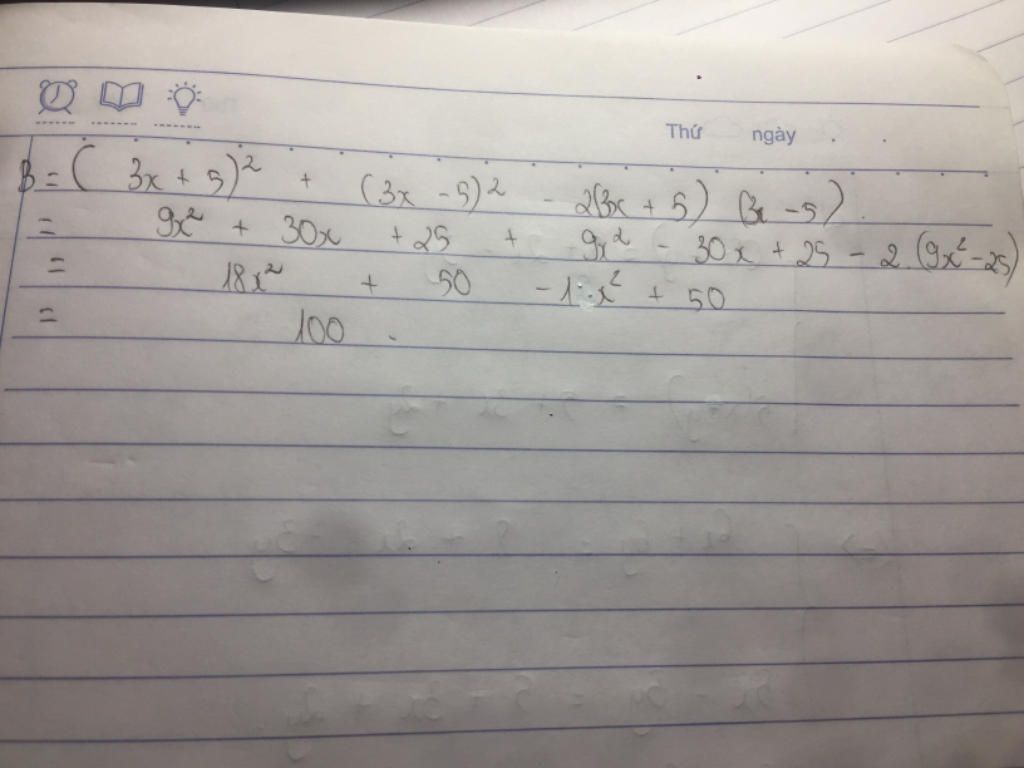 Thứ ngày . .
B = ( 3x + 5)² + (3x - 5)² - 2(3x + 5) (3x - 5).
= 9x² + 30x + 25 + 9x² - 30x + 25 - 2.(9x² - 25)
= 18x² + 50 - 1 x² + 50
= 100 .